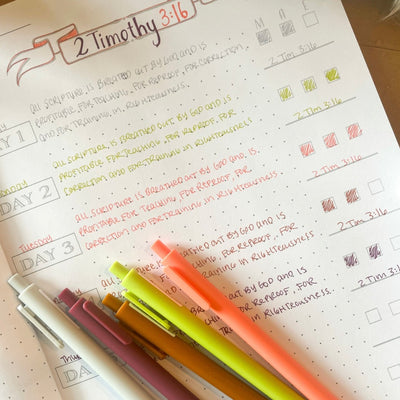 2 Timothy 3:16
M A E
ALL SCRIPTURE IS BREATHED OUT BY GOD AND IS
PROFITABLE FOR TEACHING, FOR REPROOF, FOR CORRECTION,
AND FOR TRAINING IN RIGHTEOUSNESS.
2 Tim 3:16
DAY 1
ALL SCRIPTURE IS BREATHED OUT BY GOD AND IS
PROFITABLE FOR TEACHING, FOR REPROOF, FOR
CORRECTION AND FOR TRAINING IN RIGHTEOUSNESS
2 Tim 3:16
DAY 2
ALL SCRIPTURE IS BREATHED OUT BY GOD AND IS
PROFITABLE FOR TEACHING, FOR REPROOF, FOR
CORRECTION AND FOR TRAINING IN RIGHTEOUSNESS.
2 Tim 3:16
Tuesday
DAY 3
BREATHED OUT BY GOD AND IS
FOR REPROOF, FOR
IN RIGHTEOUSNESS
2 Tim 3:16
OUT BY GOD AND IS
FOR REPROOF, FOR
IN RIGHTEOUSNESS.
2 Tim 3:16